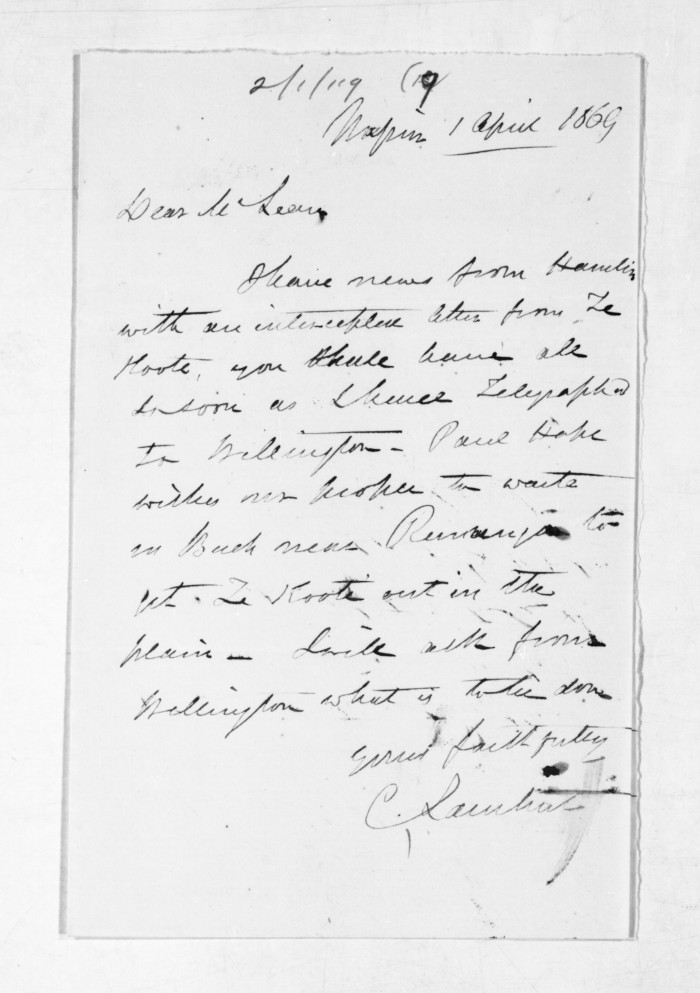 2/1/119 (19
Napier 1 April 1869
Dear McLean
I have news from Hamlin
with an intercepted letter from Te
Koote, you shall have all
as soon as I have Telegraphed
to Wellington - Paul Hapi
wishes our people to waite
in Bush near Ruawanga to
get Te Koote out in the
plain - I will ask from
Wellington what is to be done
yours faithfully
C. Lambert